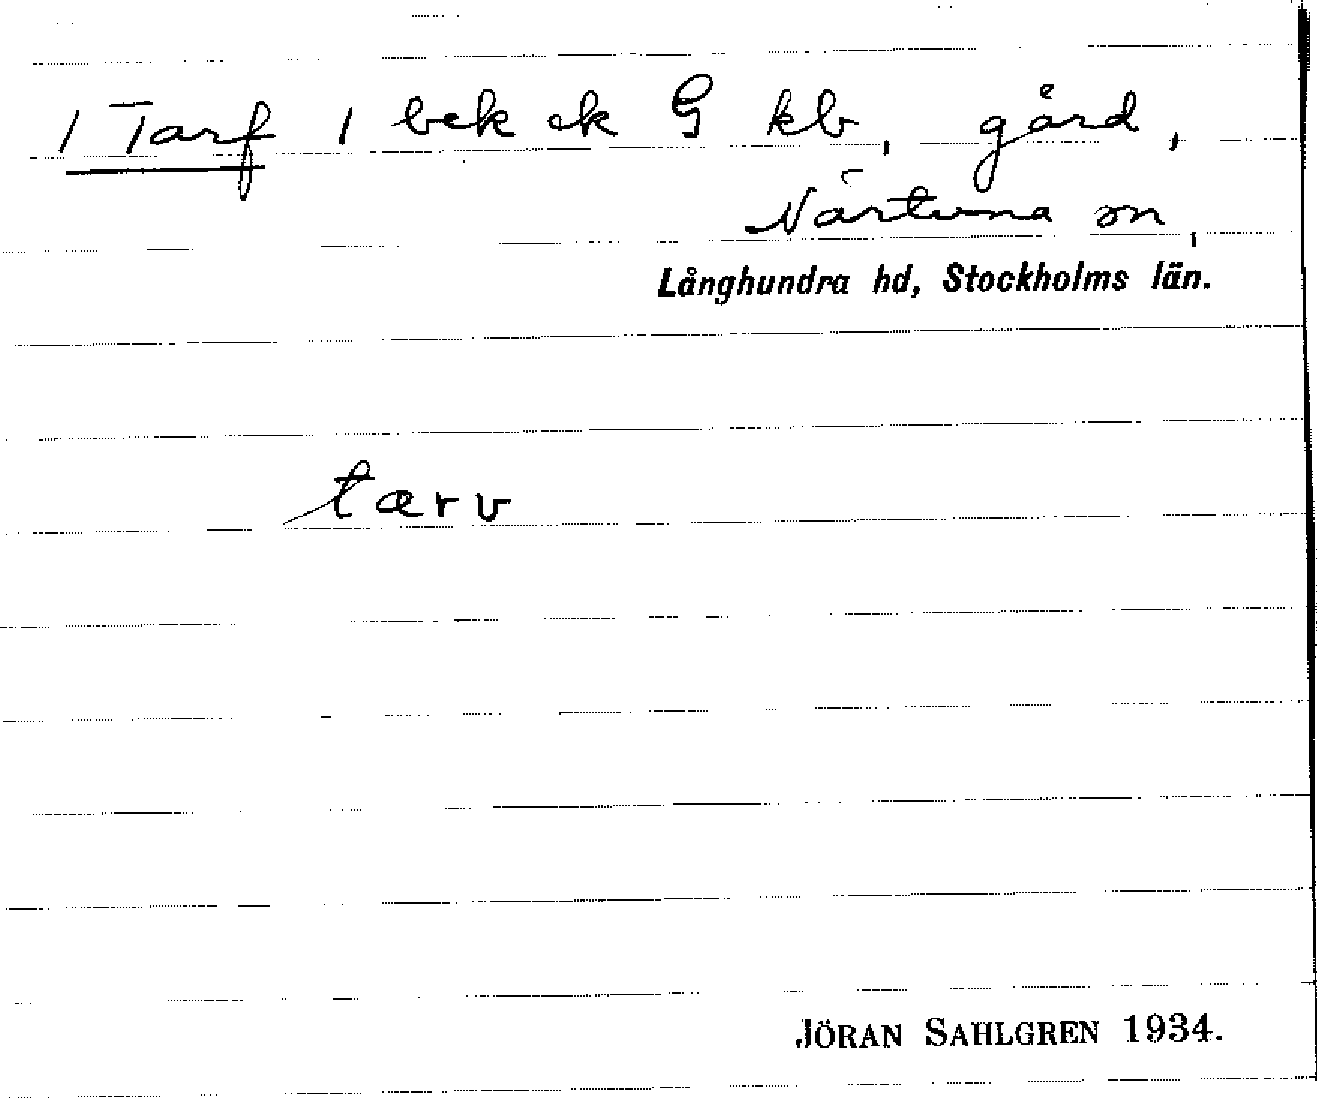 / Tarf / bek ek G kb, gård,
Närtuna sn,
Långhundra hd, Stockholms län.
tærv
JÖRAN SAHLGREN 1934.